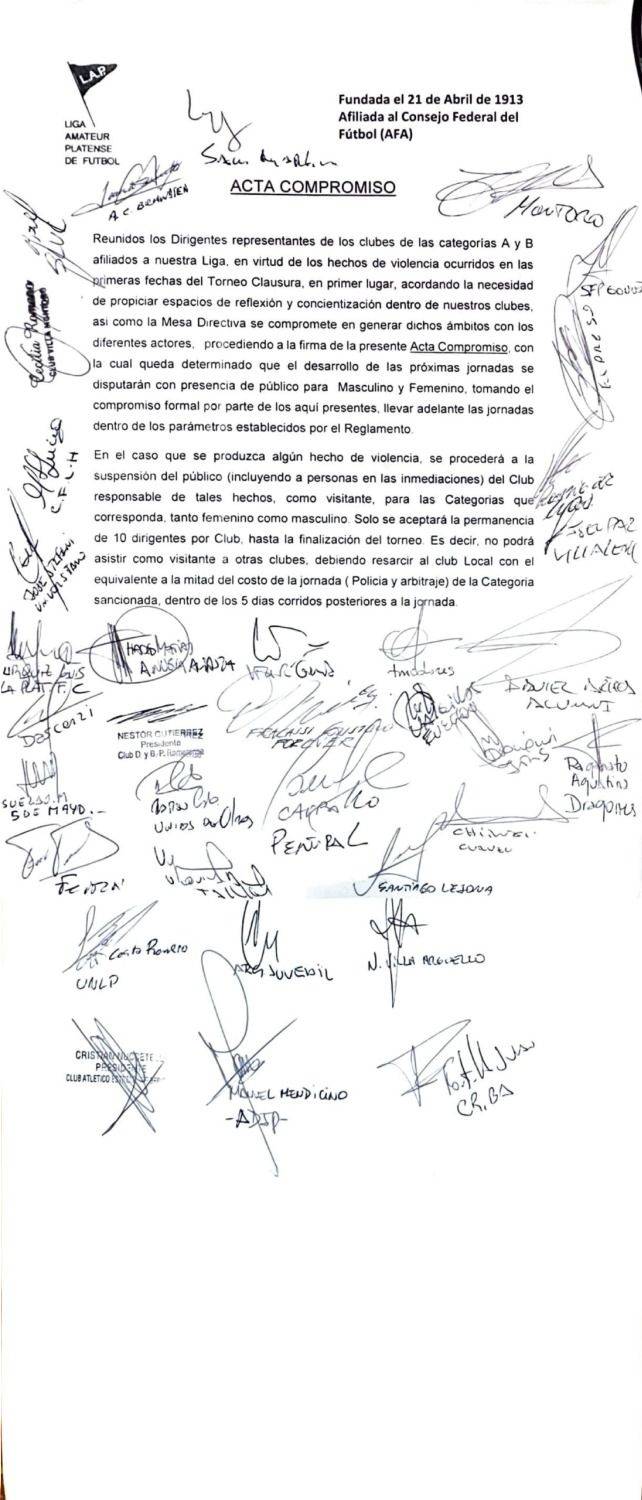 L.A.P.
LIGA
AMATEUR
PLATENSE
DE FUTBOL
Fundada el 21 de Abril de 1913
Afiliada al Consejo Federal del
Fútbol (AFA)
ACTA COMPROMISO
A.C. BRANDSEN
MONTORO
Reunidos los Dirigentes representantes de los clubes de las categorías A y B
afiliados a nuestra Liga, en virtud de los hechos de violencia ocurridos en las
primeras fechas del Torneo Clausura, en primer lugar, acordando la necesidad
de propiciar espacios de reflexión y concientización dentro de nuestros clubes,
asi como la Mesa Directiva se compromete en generar dichos ámbitos con los
diferentes actores, procediendo a la firma de la presente Acta Compromiso, con
la cual queda determinado que el desarrollo de las próximas jornadas se
disputarán con presencia de público para Masculino y Femenino, tomando el
compromiso formal por parte de los aquí presentes, llevar adelante las jornadas
dentro de los parámetros establecidos por el Reglamento.
En el caso que se produzca algún hecho de violencia, se procederá a la
suspensión del público (incluyendo a personas en las inmediaciones) del Club
responsable de tales hechos, como visitante, para las Categorias que
corresponda, tanto femenino como masculino. Solo se aceptará la permanencia
de 10 dirigentes por Club, hasta la finalización del torneo. Es decir, no podrá
asistir como visitante a otras clubes, debiendo resarcir al club Local con el
equivalente a la mitad del costo de la jornada ( Policia y arbitraje) de la Categoria
sancionada, dentro de los 5 dias corridos posteriores a la jornada.
Cecilia Romano
C.F.L.H
VILLA LENCI
LA PLATA F.C
NESTOR GUTIERREZ
Presidente
Club D. y B. P. Romerense
FOREVER
5 DE MAYO.-
CARBALLO
PEÑAROL
Agustin
Dragones
SANTIAGO LESONA
Costa Rosario
UNLP
ARG JUVENIL
N. VILLA ARGUELLO
CRISTIAN
PRESIDENTE
CLUB ATLETICO
MANUEL MENDICINO
-ADIP-
CRIBA